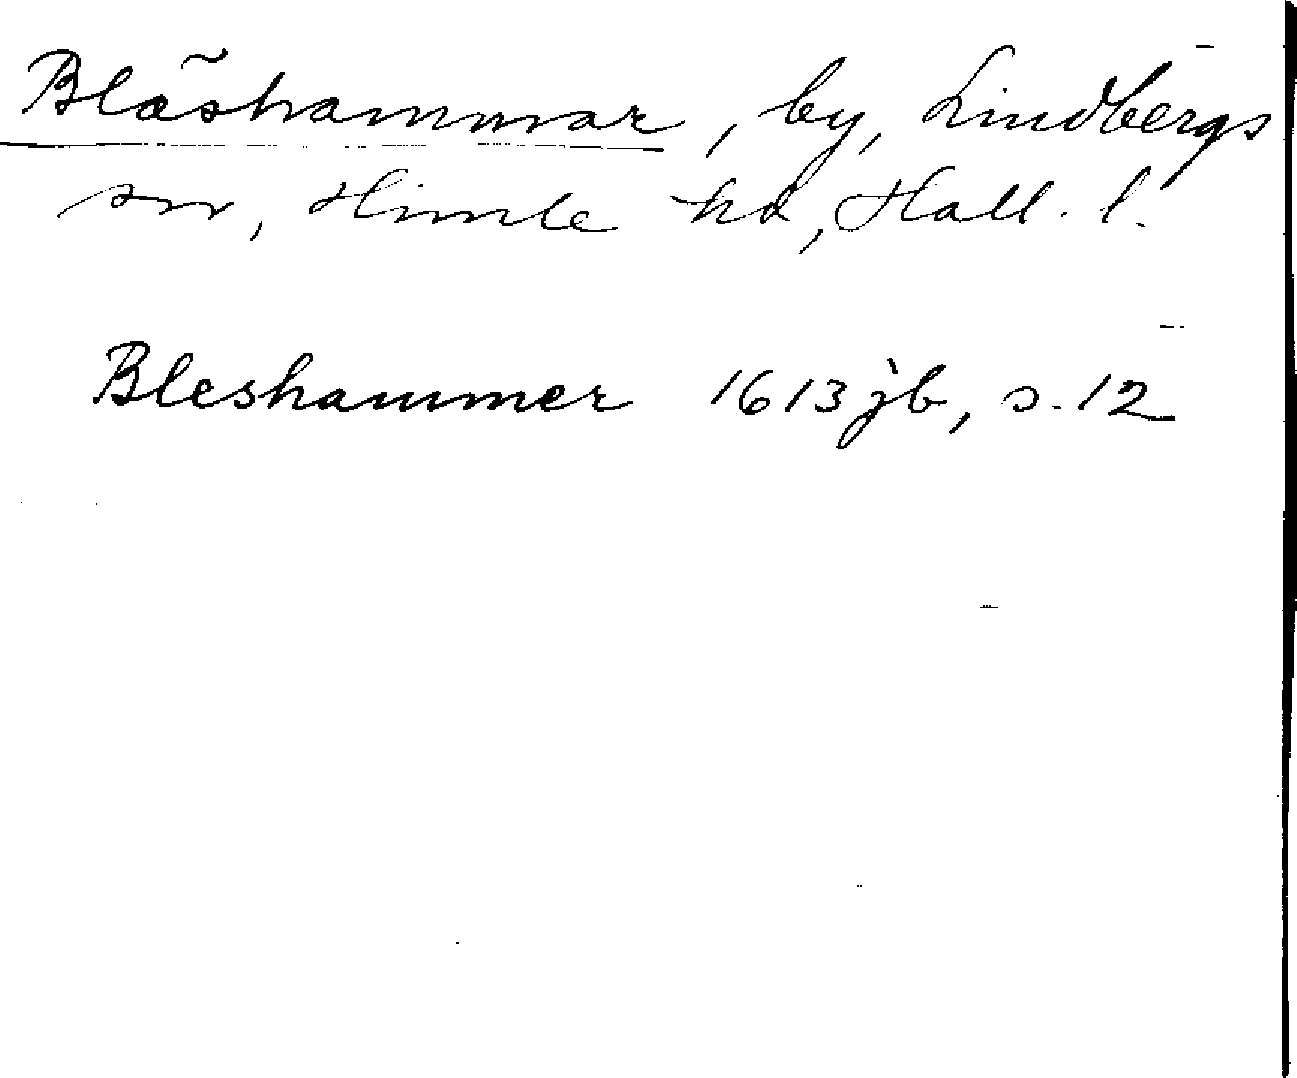 Bläshammar, by, Lindbergs
sn, Himle hd, Hall. l.
Bleshammer 1613 jb, s. 12